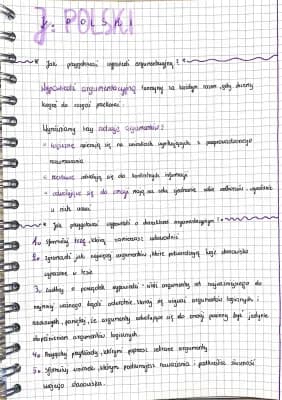 J. POLSKI
Jak przygotować wypowiedź argumentacyjną?
Wypowiedź argumentacyjną tworzymy za każdym razem, gdy chcemy
kogoś do czegoś przekonać.
Wyróżniamy trzy rodzaje argumentów:
- logiczne opierają się na wnioskach wynikających z przeprowadzonego
rozumowania
- rzeczowe odwołują się do konkretnych informacji
- odwołujące się do emocji mają na celu zjednanie sobie odbiorców, wywołanie
u nich
Jak przygotować wypowiedź o charakterze argumentacyjnym?
1. Sformułuj tezę, którą zamierzasz udowodnić
2. Zgromadź jak najwięcej argumentów, które potwierdzają twoje stanowisko
wyrażone w tezie
3. Zadbaj o porządek wypowiedzi - ułóż argumenty od najważniejszego do
najmniej ważnego bądź odwrotnie. Używaj argumentów logicznych i
rzeczowych, pamiętaj, że argumenty odwołujące się do emocji powinny być jedynie
argumentów logicznych.
4. Przygotuj przykłady, którymi poprzesz wybrane argumenty
5. Sformułuj wniosek, którym podsumujesz rozważania i podkreślisz słuszność
twojego stanowiska.